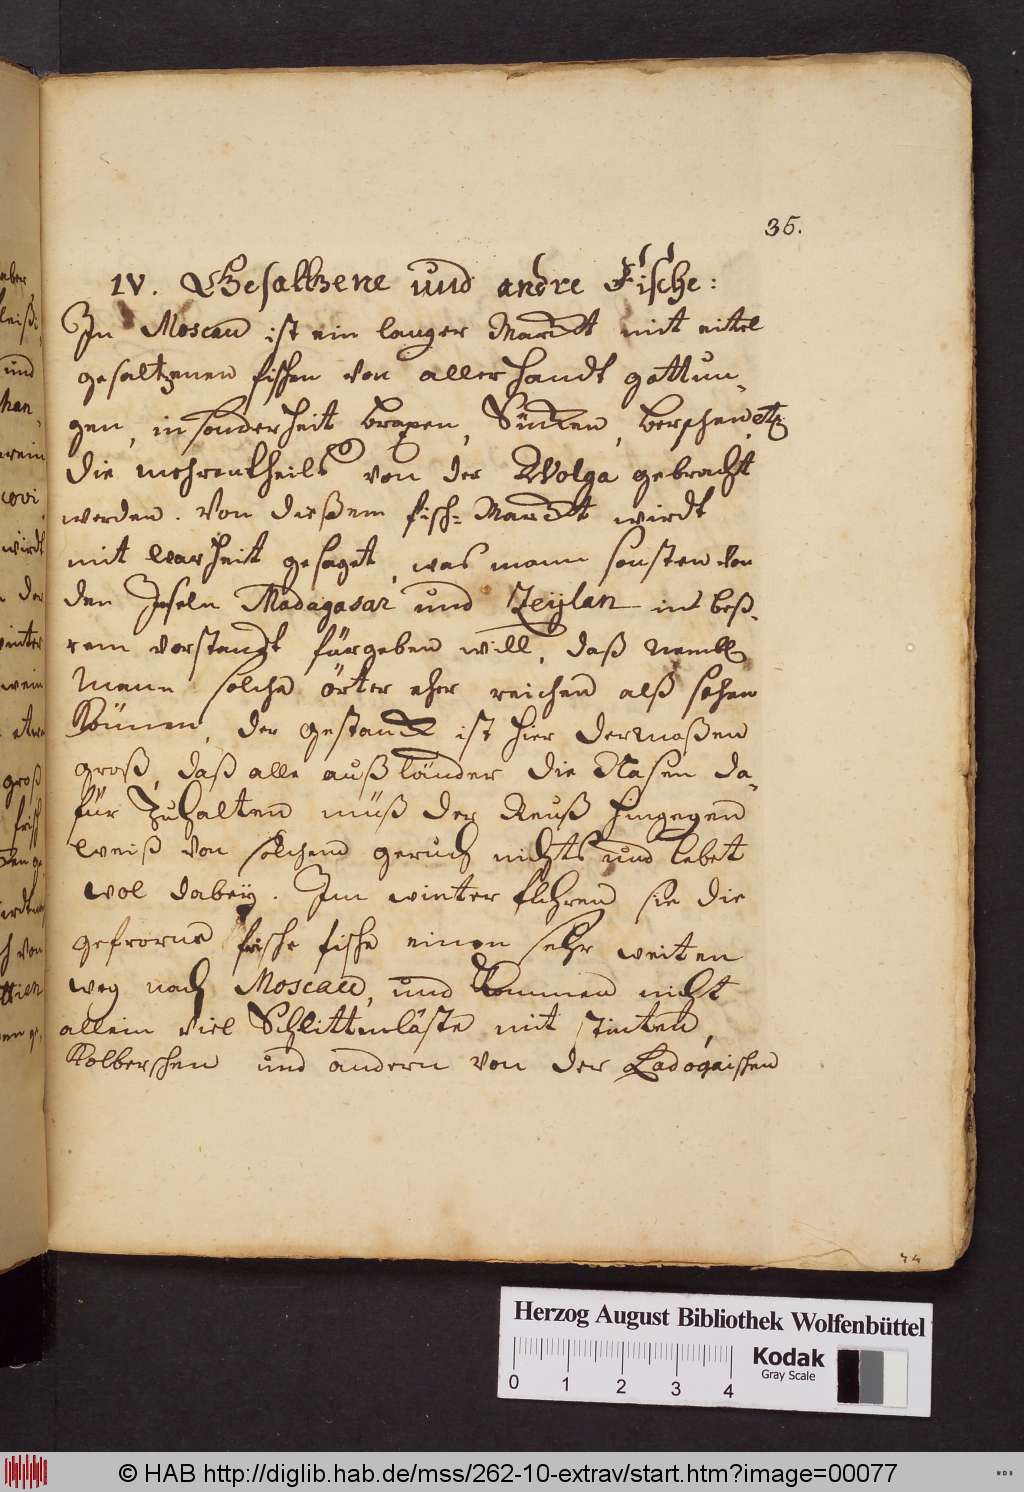 35.
IV. Gesaltzene und andre Fische:
In Moscau ist ein langer Marckt mit eitel
gesaltzenen fischen von allerhandt gattun-
gen, in sonderheit braxen, Sincken, berschen etc
die mehrentheils von der Wolga gebracht
werden. Von dießem fisch-Marckt wirdt
mit warheit gesaget, was mann sonsten von
den Inseln Madagasar und Zeylan ins beß-
rem verstandt fürgeben will, daß nembl.
Mann solche örter eher riechen alß sehen
können, der gestanck ist hier dermaßen
groß, daß alle außländer die Nasen da-
für zuhalten müß der Reuß hingegen
weiß von solchem geruch nichts und lebet
wol dabey. Im winter führen sie die
gefrorne frische fische einen sehr weiten
weg nach Moscau, und kommen nicht
allein viel Schlittenläste mit stinten,
Kolberschen und andern von der Ladogaischen
aber
fleiß-
und
han-
wein
covi
wirdt
der
winter
wein
etwa
groß
frisch
von
Herzog August Bibliothek Wolfenbüttel
0 1 2 3 4
Kodak
Gray Scale
© HAB http://diglib.hab.de/mss/262-10-extrav/start.htm?image=00077